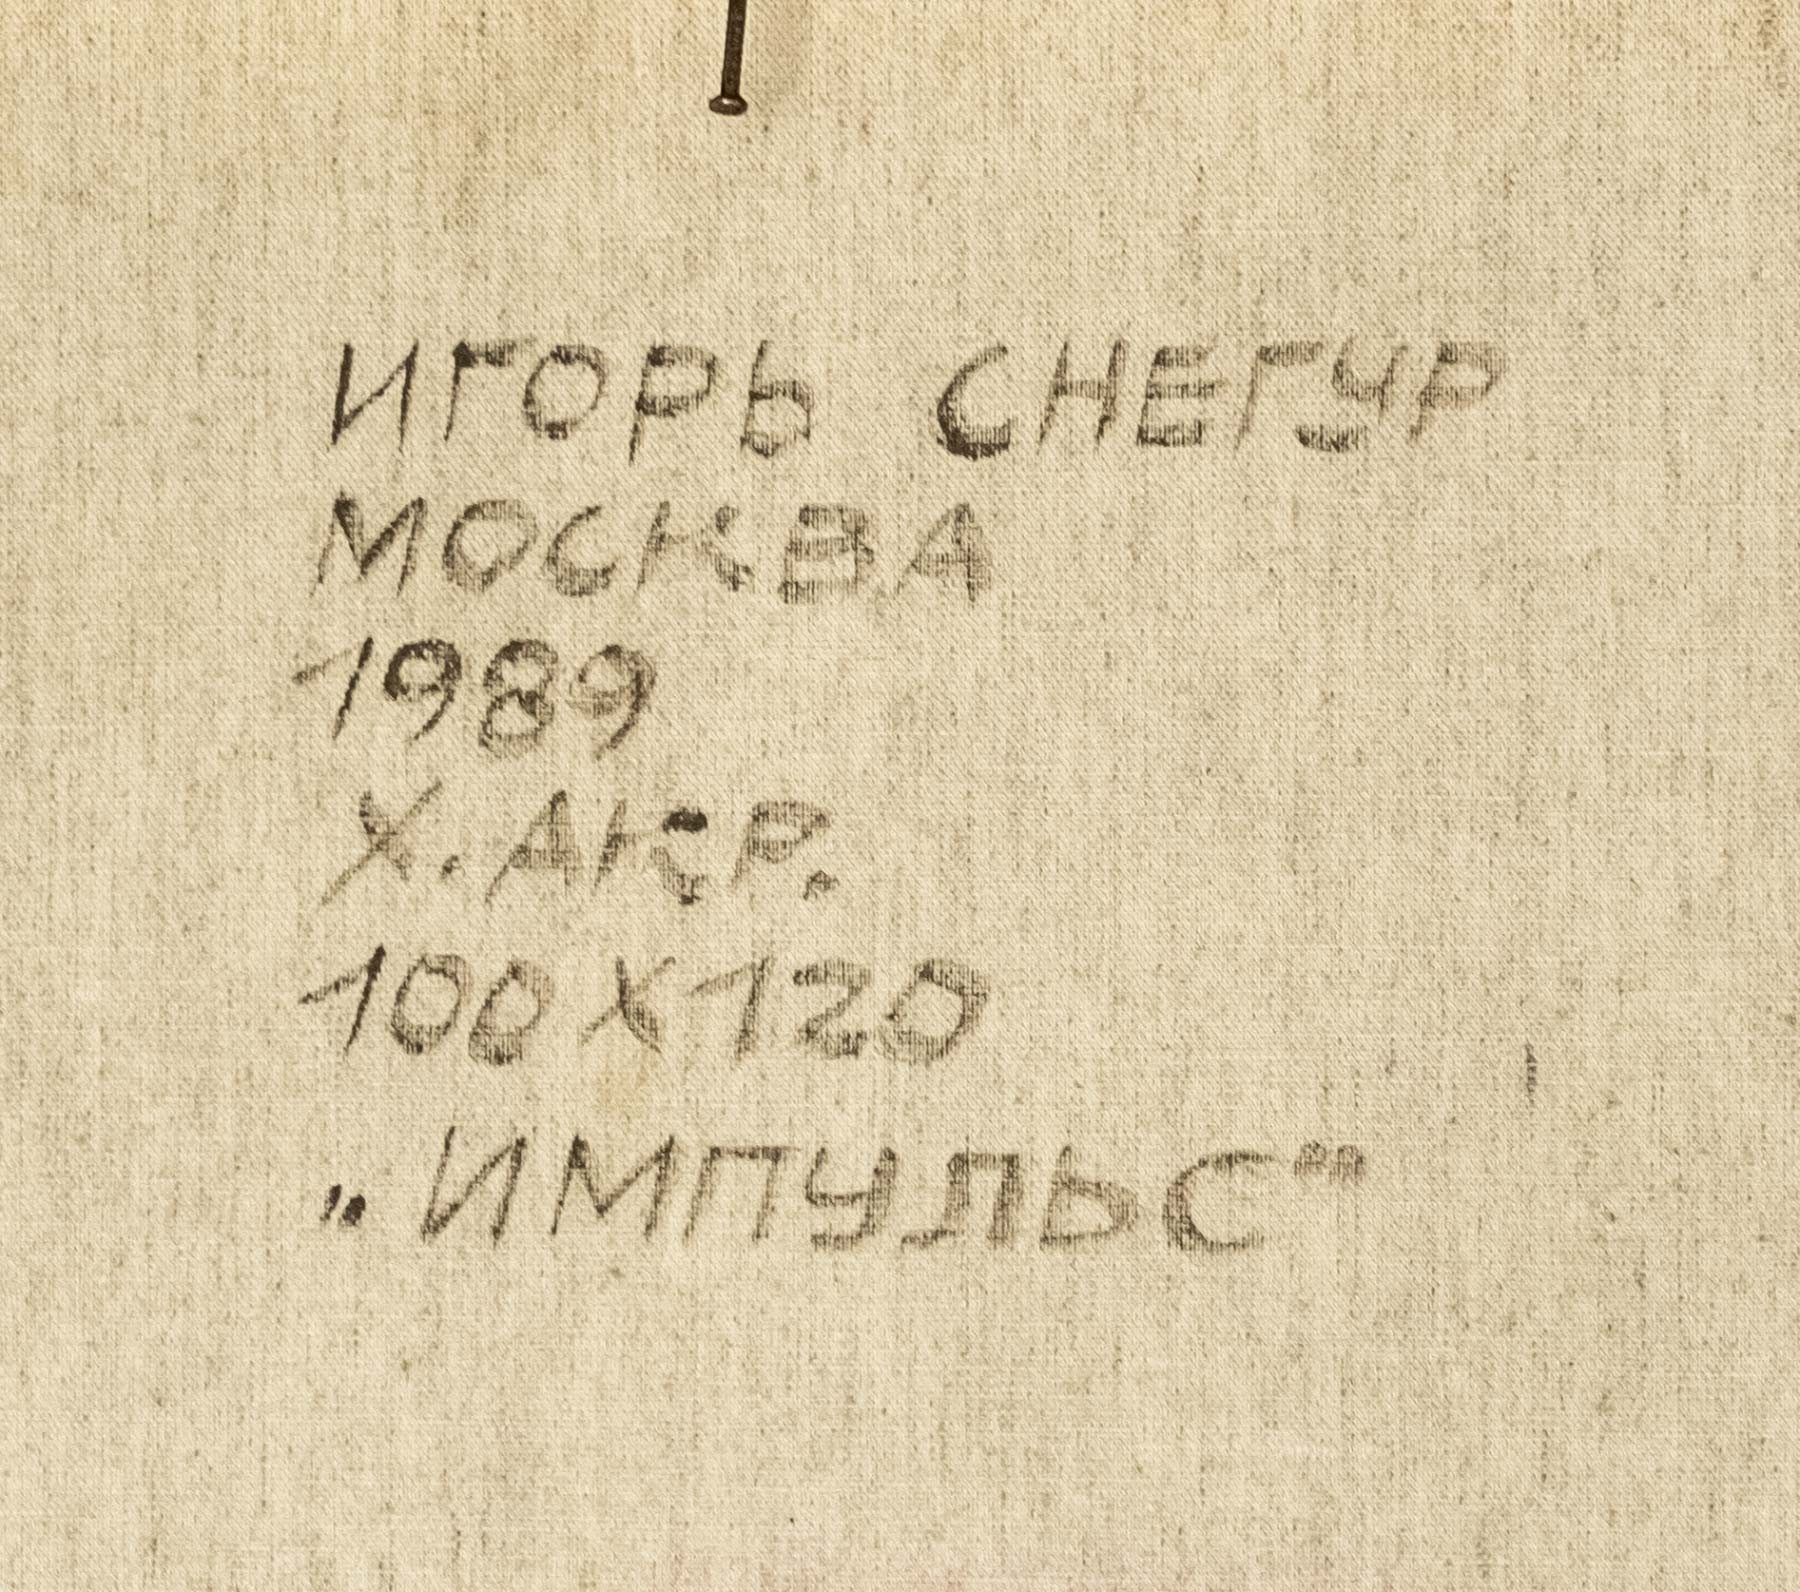 ИГОРЬ СНЕГУР
МОСКВА
1989
Х. АКР.
100 Х 120
„ИМПУЛЬС“